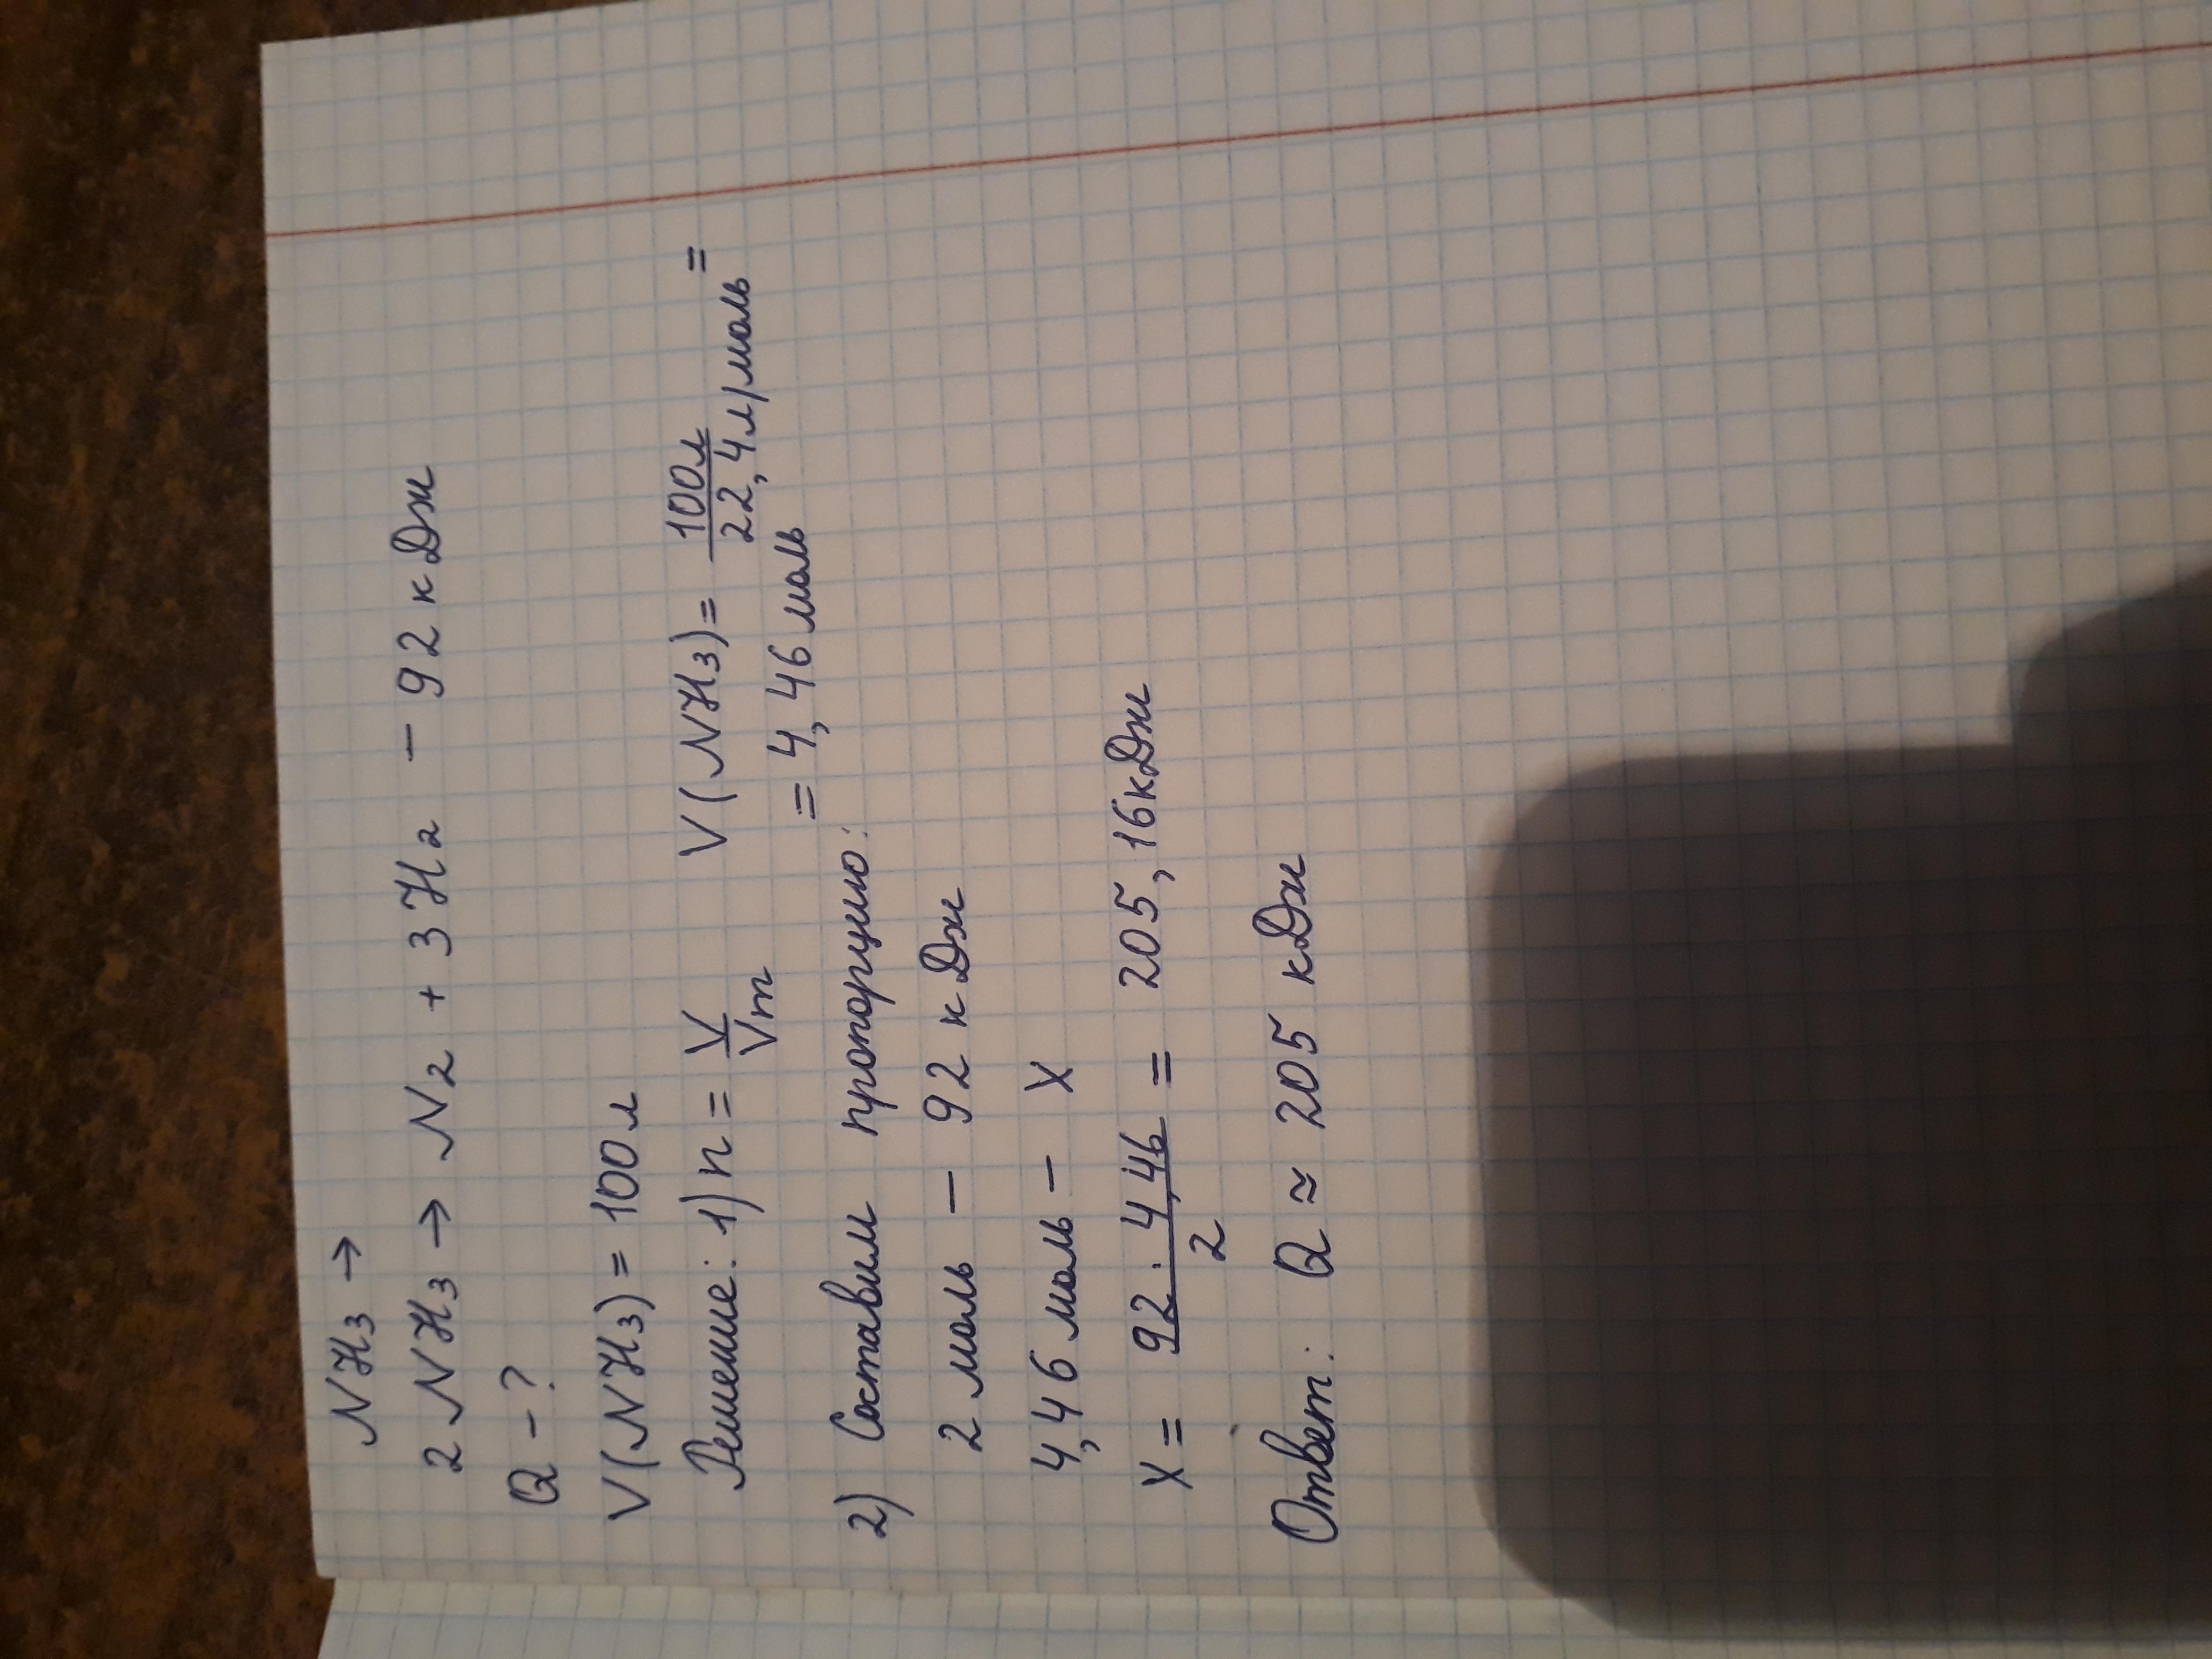 NH₃ →
2 NH₃ → N₂ + 3H₂ - 92 кДж
Q - ?
V(NH₃) = 100 л
Решение: 1) n = V/Vm V(NH₃) = 100л/22,4л/моль =
= 4,46 моль
2) Составим пропорцию:
2 моль - 92 кДж
4,46 моль - X
X = 92 · 4,46/2 = 205,16кДж
Ответ: Q ≈ 205 кДж